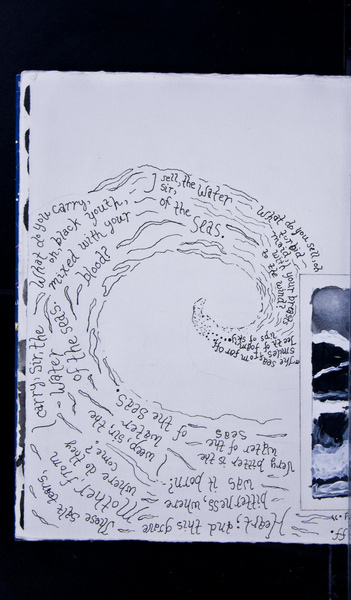 The sea,
smiles from far off.
Teeth of foam,
lips of sky.
What do you sell, oh
turbid
maid,
with your breasts
to the wind?
I sell, the water
sir,
of the
seas.
What do you carry,
oh, black youth,
mixed with your
blood?
I carry, sir, the
water
of the seas
These salt tears,
Mother from
where do they
come?
I weep, sir, the
water,
of the seas.
Heart; and this grave
bitterness, where
was it born?
Very bitter is the
water of the
seas
ff.